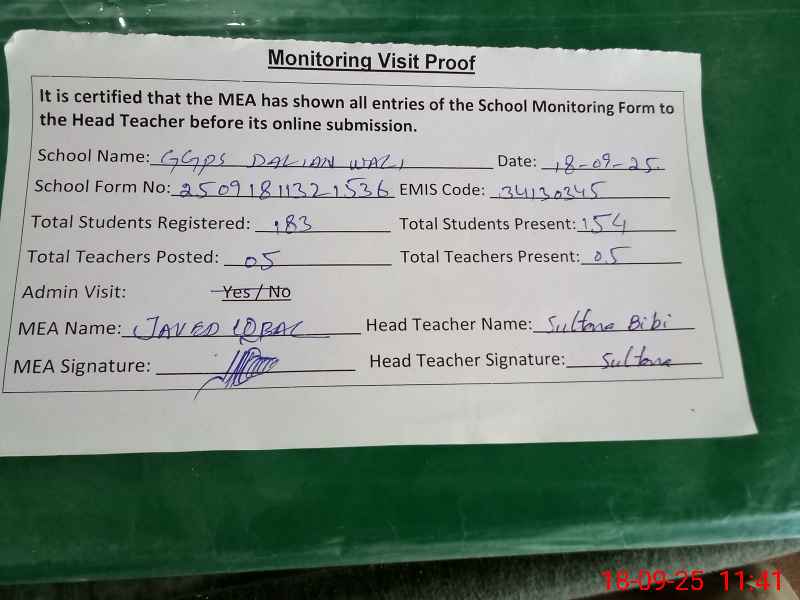 Monitoring Visit Proof
It is certified that the MEA has shown all entries of the School Monitoring Form to
the Head Teacher before its online submission.
School Name: GGPS DALIAN WALI Date: 18-09-25
School Form No: 25091811321536 EMIS Code: 34130345
Total Students Registered: 183 Total Students Present: 154
Total Teachers Posted: 05 Total Teachers Present: 05
Admin Visit: Yes / No
MEA Name: JAVED IQBAL Head Teacher Name: Sultana Bibi
MEA Signature: Head Teacher Signature: Sultana
18-09-25 11:41